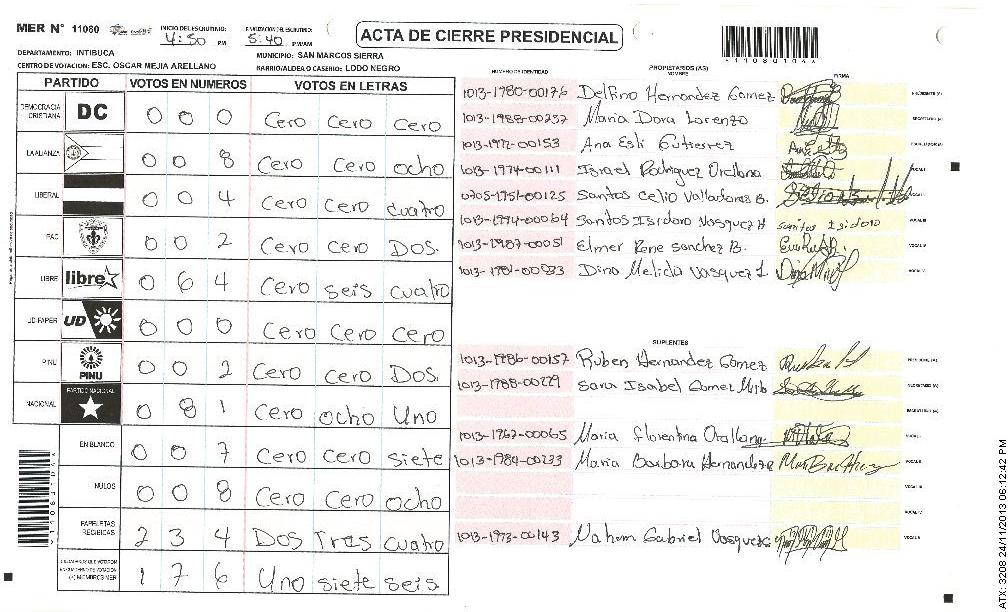 MER N° 11080 INICIO DEL ESCRUTINIO: 4:50 PM FINALIZACION DEL ESCRUTINIO: 5:40 PM/AM
ACTA DE CIERRE PRESIDENCIAL
DEPARTAMENTO: INTIBUCA MUNICIPIO: SAN MARCOS SIERRA
CENTRO DE VOTACION: ESC. OSCAR MEJIA ARELLANO BARRIO/ALDEA O CASERIO: LODO NEGRO
PARTIDO VOTOS EN NUMEROS VOTOS EN LETRAS
DEMOCRACIA CRISTIANA DC 0 0 0 Cero Cero Cero
LA ALIANZA 0 0 8 Cero Cero ocho
LIBERAL 0 0 4 Cero Cero cuatro
PAC 0 0 2 Cero Cero DOS.
LIBRE libre 0 6 4 Cero seis cuatro
UD-FAPER UD 0 0 0 Cero Cero Cero
PINU PINU 0 0 2 Cero Cero DOS.
NACIONAL PARTIDO NACIONAL 0 8 1 Cero ocho Uno
EN BLANCO 0 0 7 Cero Cero siete
NULOS 0 0 8 Cero Cero ocho
PAPELETAS RECIBIDAS 2 3 4 Dos Tres cuatro
(+) MIEMBROS MER 1 7 6 Uno siete seis
NUMERO DE IDENTIDAD PROPIETARIOS (AS) NOMBRE FIRMA
1013-1980-00176 Delfino Hernandez Gomez PRESIDENTE (A)
1013-1988-00257 Maria Dora Lorenzo SECRETARIO (A)
1013-1972-00153 Ana Esli Gutierrez ESCRUTADOR (A)
1013-1974-00111 Israel Rodriguez Orellana VOCAL I
0205-1951-00125 Santos Celio Valladares B. VOCAL II
1013-1974-00064 Santos Isidoro Vasquez H Santos Isidoro VOCAL III
1013-1987-00051 Elmer Rene Sanchez B. VOCAL IV
Dino Melicio Vasquez L VOCAL V
SUPLENTES
1013-1986-00157 Ruben Hernandez Gomez PRESIDENTE (A)
1013-1988-00229 Sara Isabel Gomez SECRETARIO (A)
ESCRUTADOR (A)
1013-1962-00065 Maria Florentina Orellana VOCAL I
1013-1984-00233 Maria Barbara Hernandez VOCAL II
VOCAL III
VOCAL IV
1013-1973-00143 Nahum Gabriel Vasquez VOCAL V
*11080104*
*11080104*
ATX: 3208 24/11/2013 06:12:42 PM